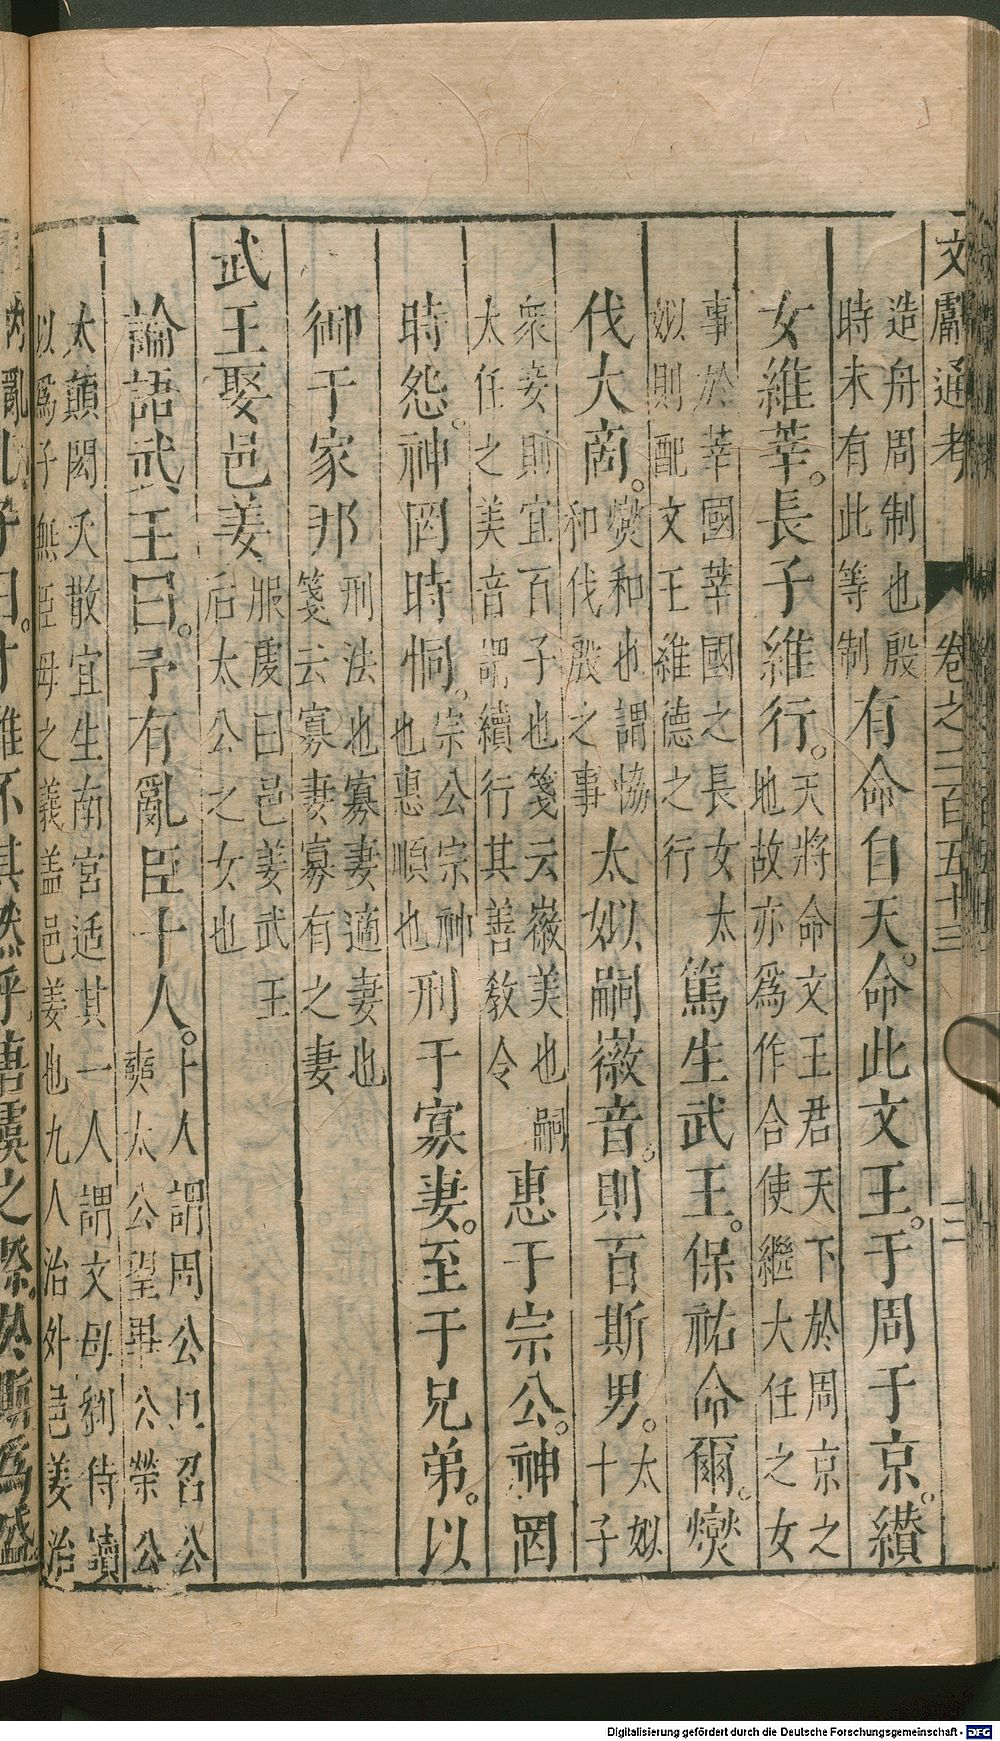 文獻通考 卷之二百五十三
造舟周制也殷
時未有此等制
有命自天。命此文王。于周于京。纘
女維莘。長子維行。
天將命文王君天下於周京之
地故亦爲作合使繼大任之女
事於莘國莘國之長女太
姒則配文王維德之行
篤生武王。保祐命爾。燮
伐大商。
燮和也謂恊
和伐殷之事
太姒嗣徽音。則百斯男。
太姒
十子
衆妾則宜百子也箋云徽美也嗣
太任之美音謂續行其善敎令
惠于宗公。神罔
時怨。神罔時恫。
宗公宗神
也惠順也
刑于寡妻。至于兄弟。以
御于家邦
刑法也寡妻適妻也
箋云寡妻寡有之妻
武王娶邑姜
服虔曰邑姜武王
后太公之女也
論語武王曰。予有亂臣十人。
十人謂周公旦召公
奭太公望畢公榮公
太顛閎夭散宜生南宮适其一人謂文母劉侍讀
以爲子無臣母之義蓋邑姜也九人治外邑姜治
內亂孔子曰。才難不其然乎唐虞之際。於斯爲盛。
Digitalisierung gefördert durch die Deutsche Forschungsgemeinschaft - DFG